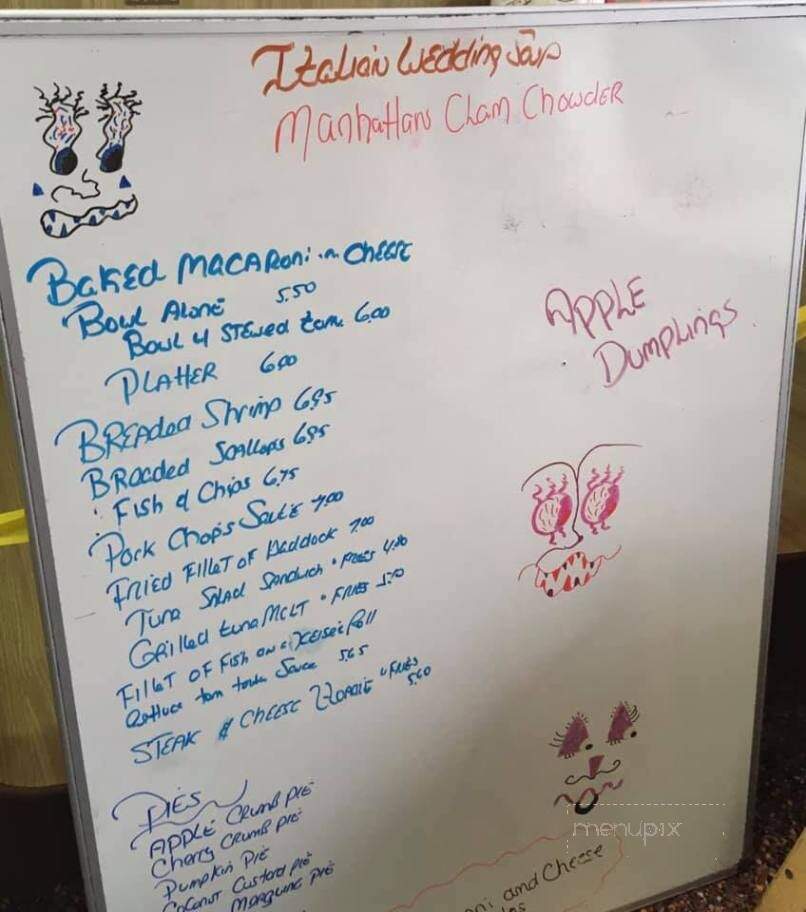 Italian Wedding Soup
Manhattan Clam Chowder
Baked Macaroni n Cheese
Bowl Alone 5.50
Bowl 4 Stewed tom. 6.00
Platter 6.00
Apple
Dumplings
Breaded Shrimp 6.95
Breaded Scallops 6.95
Fish & Chips 6.75
Pork Chops 7.00
Fried Fillet of Haddock 7.00
Tuna Salad Sandwich & Fries
Grilled tuna Melt & Fries
Fillet of Fish on a Roll
Lettuce tom Sauce 5.65
Steak & Cheese & Fries
5.60
Pies
Apple Crumb Pie
Cherry Crumb Pie
Pumpkin Pie
Coconut Custard Pie
Pie
and Cheese
menupix